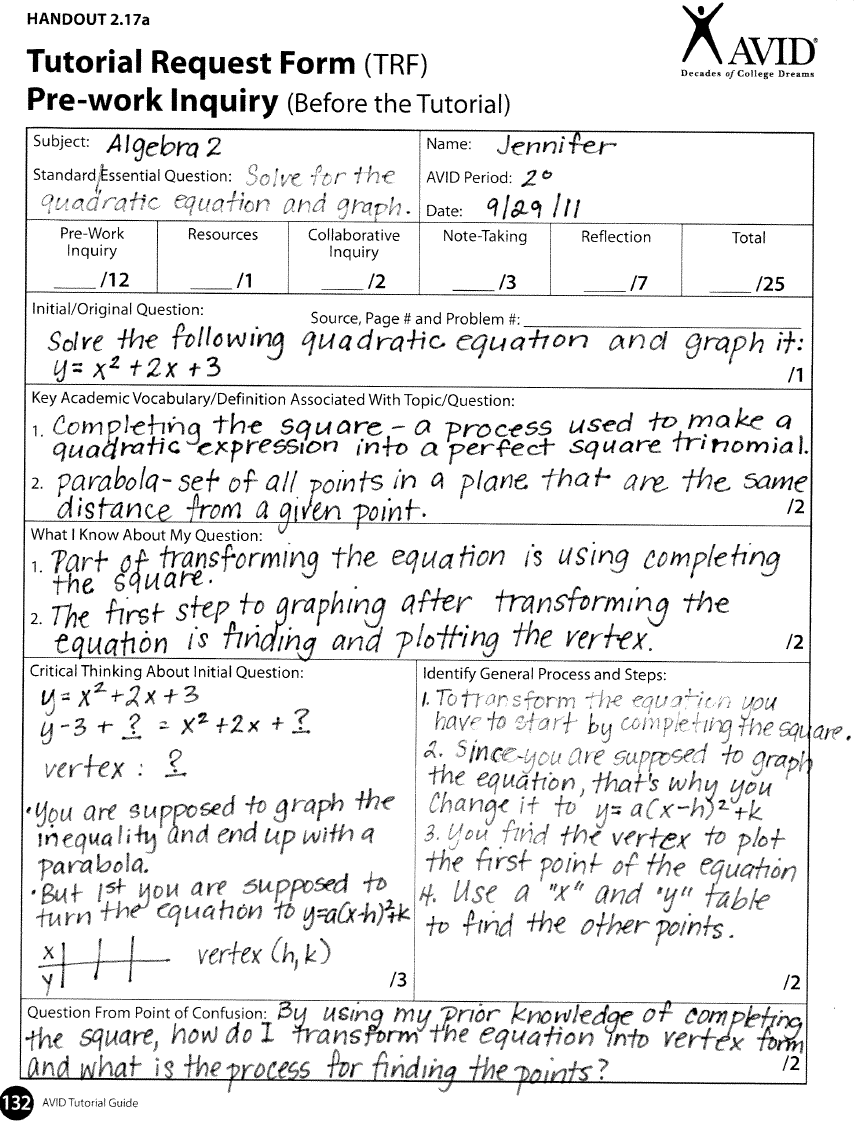 HANDOUT 2.17a
AVID®
Decades of College Dreams
Tutorial Request Form (TRF)
Pre-work Inquiry (Before the Tutorial)
Subject: Algebra 2
Standard/Essential Question: Solve for the
quadratic equation and graph.
Name: Jennifer
AVID Period: 2°
Date: 9/29/11
Pre-Work
Inquiry
____ /12
Resources
____ /1
Collaborative
Inquiry
____ /2
Note-Taking
____ /3
Reflection
____ /7
Total
____ /25
Initial/Original Question:
Source, Page # and Problem #: ____
Solve the following quadratic equation and graph it:
y = x² + 2x + 3
/1
Key Academic Vocabulary/Definition Associated With Topic/Question:
1. Completing the square – a process used to make a
quadratic expression into a perfect square trinomial.
2. parabola - set of all points in a plane that are the same
distance from a given point.
/2
What I Know About My Question:
1. Part of transforming the equation is using completing
the square.
2. The first step to graphing after transforming the
equation is finding and plotting the vertex.
/2
Critical Thinking About Initial Question:
y = x² + 2x + 3
y - 3 + ? = x² + 2x + ?
vertex : ?
• You are supposed to graph the
inequality and end up with a
parabola.
• But 1st you are supposed to
turn the equation to y=a(x-h)²+k
x
y
vertex (h, k)
/3
Identify General Process and Steps:
1. To transform the equation you
have to start by completing the square.
2. Since you are supposed to graph
the equation, that's why you
change it to y = a(x-h)² + k
3. You find the vertex to plot
the first point of the equation
4. Use a "x" and "y" table
to find the other points.
/2
Question From Point of Confusion: By using my prior knowledge of completing
the square, how do I transform the equation into vertex form
and what is the process for finding the points?
/2
132 AVID Tutorial Guide